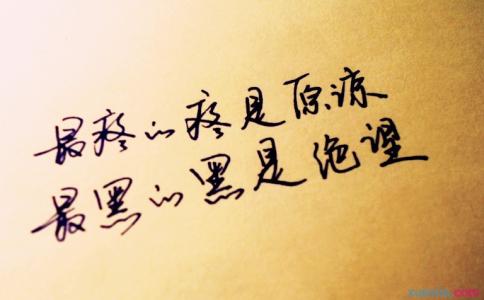 最疼的疼是原谅
最黑的黑是绝望